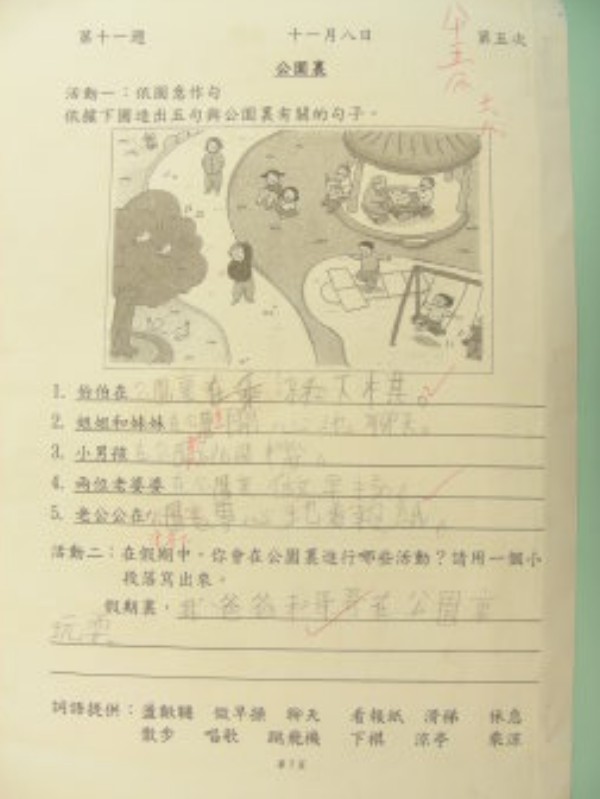 第十一週 十一月八日 第五次
公園裏
活動一：依圖意作句
依據下圖造出五句與公園裏有關的句子。
1. 伯伯在公園裏在乘涼和下棋。
2. 姐姐和妹妹在公園 地 聊天。
3. 小男孩在公園
4. 兩位老婆婆在公園裏做早操。
5. 老公公在公園裏專心地看報紙。
活動二：在假期中，你會在公園裏進行哪些活動？請用一個小
段落寫出來。
假期裏，我爸爸和哥哥在公園裏
玩耍。
詞語提供：盪鞦韆 做早操 聊天 看報紙 滑梯 休息
散步 唱歌 跳飛機 下棋 涼亭 乘涼